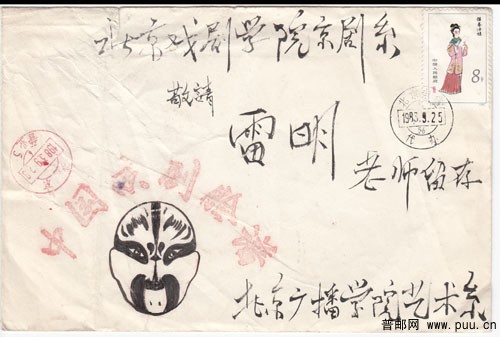 北京戏剧学院京剧系
敬请
雷明
老师留存
8分
中国人民邮政
1983.9.25
代办
中国京剧脸谱
北京广播学院艺术系
普邮网 www.puu.cn